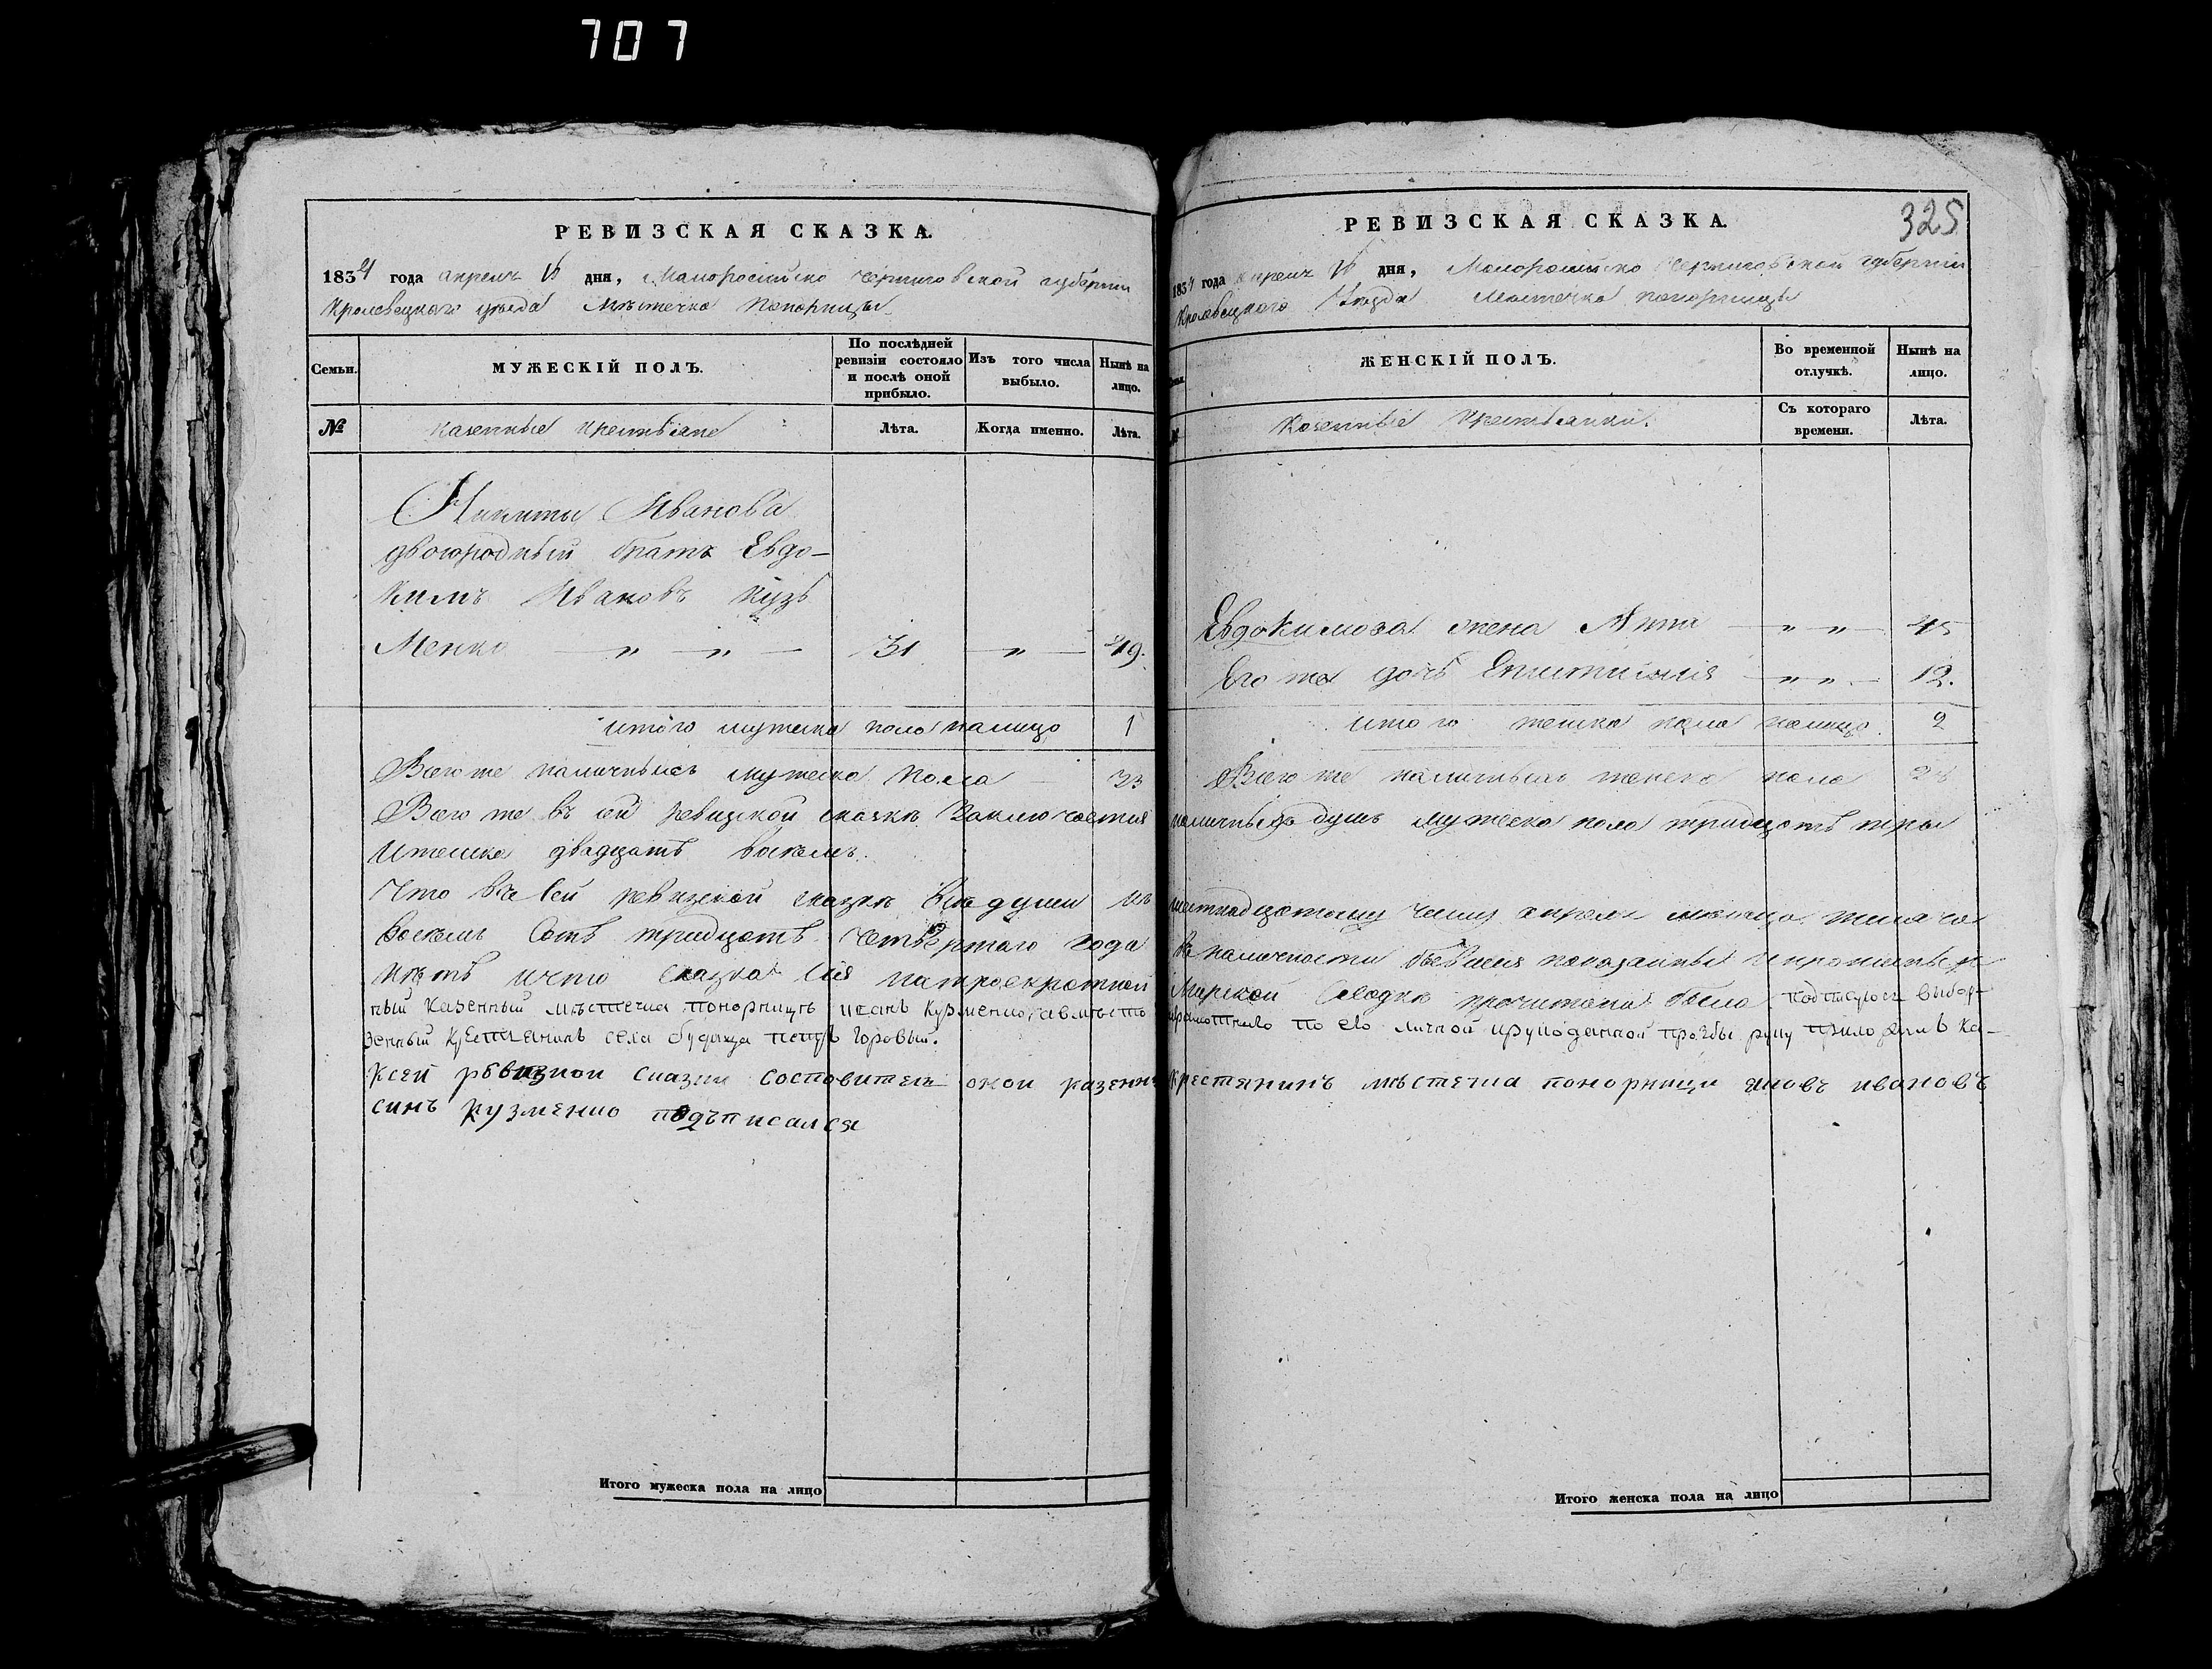 707
РЕВИЗСКАЯ СКАЗКА.
1834 года апреля 16 дня, Малоросийско Черниговской губернии
Кролевецкаго уѣзда Мѣстечка Понорницы
Семьи.
МУЖЕСКІЙ ПОЛЪ.
По послѣдней ревизіи состояло и послѣ оной прибыло.
Изъ того числа выбыло.
Нынѣ на лицо.
№
Казенные крестьяне
Лѣта.
Когда именно.
Лѣта.
Никиты Иванова
двоюродный братъ Евдо-
кимъ Ивановъ Кузь
Менко — „ — „ — 31 — „ — 49.
итого мужеска пола налицо 1
Всего же наличныхъ мужеска пола 33
Всего же въ сей ревизской сказкѣ заключается
и женска двадцать восемь.
Что в сей ревизской сказкѣ все души
восемь Сотъ тридцать Четвертаго года
нѣтъ и что сказка сия на троекратной
ный казенный мѣстечка понорницъ Кузменко, а вмѣсто
зенный крестьянинъ села будища петръ
К сей ревизкои сказки составитель онои казенны
синъ кузменко подъписался
Итого мужеска пола на лицо
РЕВИЗСКАЯ СКАЗКА.
325
1834 года апреля 16 дня, Малоросийско Черниговской губернии
Кролевецкого Уѣзда Мѣстечка понорницы
ЖЕНСКІЙ ПОЛЪ.
Во временной отлучкѣ.
Нынѣ на лицо.
№
Казенные Крестьянки.
Съ котораго времени.
Лѣта.
Евдокимова жена Анна — „ „ — 45
Его же дочь — „ „ — 12.
итого женска пола налицо 2
Всего же наличныхъ женска пола 28
наличныхъ душъ мужеска пола тридцать три
шестнадцатому числу апреля месяца тисяча
в наличности показанны и прописныхъ
Мирской Сходкѣ прочитана была подписуюсь выбор-
по его личной и рукоданной прозбы руку приложилъ Ка-
крестянинъ мѣстечка понорници яковъ ивановъ
Итого женска пола на лицо